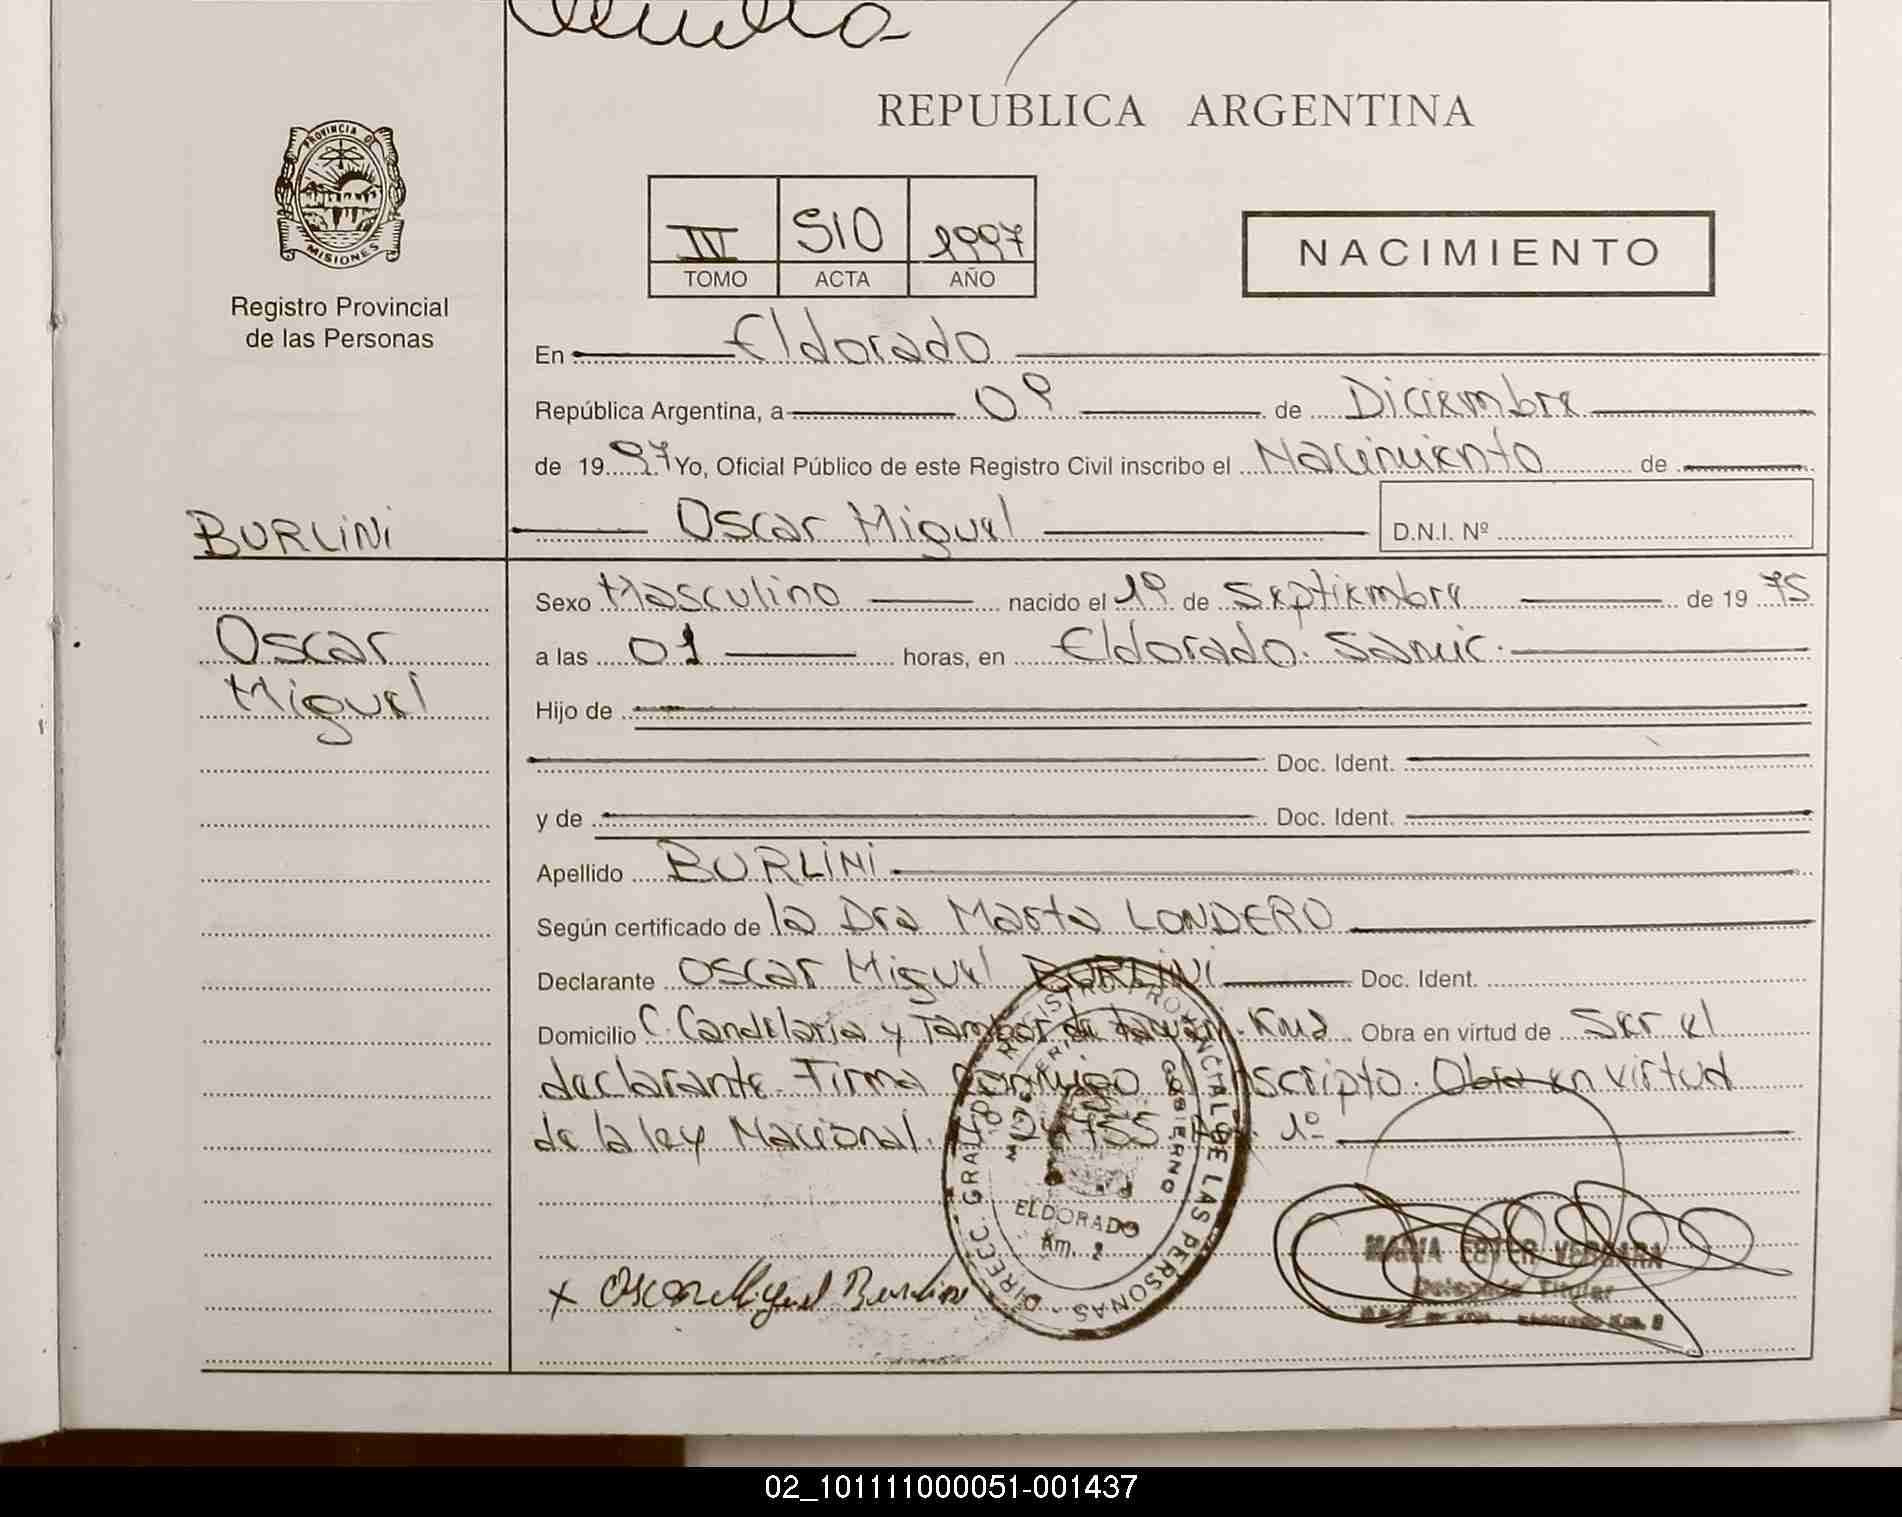 REPUBLICA ARGENTINA
PROVINCIA DE
MISIONES
Registro Provincial
de las Personas
III 510 1997
TOMO ACTA AÑO
NACIMIENTO
En Eldorado
República Argentina, a 09 de Diciembre
de 1997 Yo, Oficial Público de este Registro Civil inscribo el Nacimiento de
Oscar Miguel D.N.I. Nº
BURLINI
Oscar
Miguel
Sexo Masculino nacido el 1º de Septiembre de 1975
a las 01 horas, en Eldorado. Sanic.
Hijo de
Doc. Ident.
y de Doc. Ident.
Apellido BURLINI
Según certificado de la Dra Marta LONDERO
Declarante Oscar Miguel BURLINI Doc. Ident.
Domicilio C. Candelaria y Tambor de Obra en virtud de Ser el
declarante. Firma conmigo el inscripto. Obra en virtud
de la ley Nacional 1º
DIRECC. GRAL. DEL REGISTRO PROVINCIAL DE LAS PERSONAS
GOBIERNO
ELDORADO
Km. 2
x Oscar Miguel Burlini
MARIA ESTER VERGARA
Delegada Titular
02_101111000051-001437